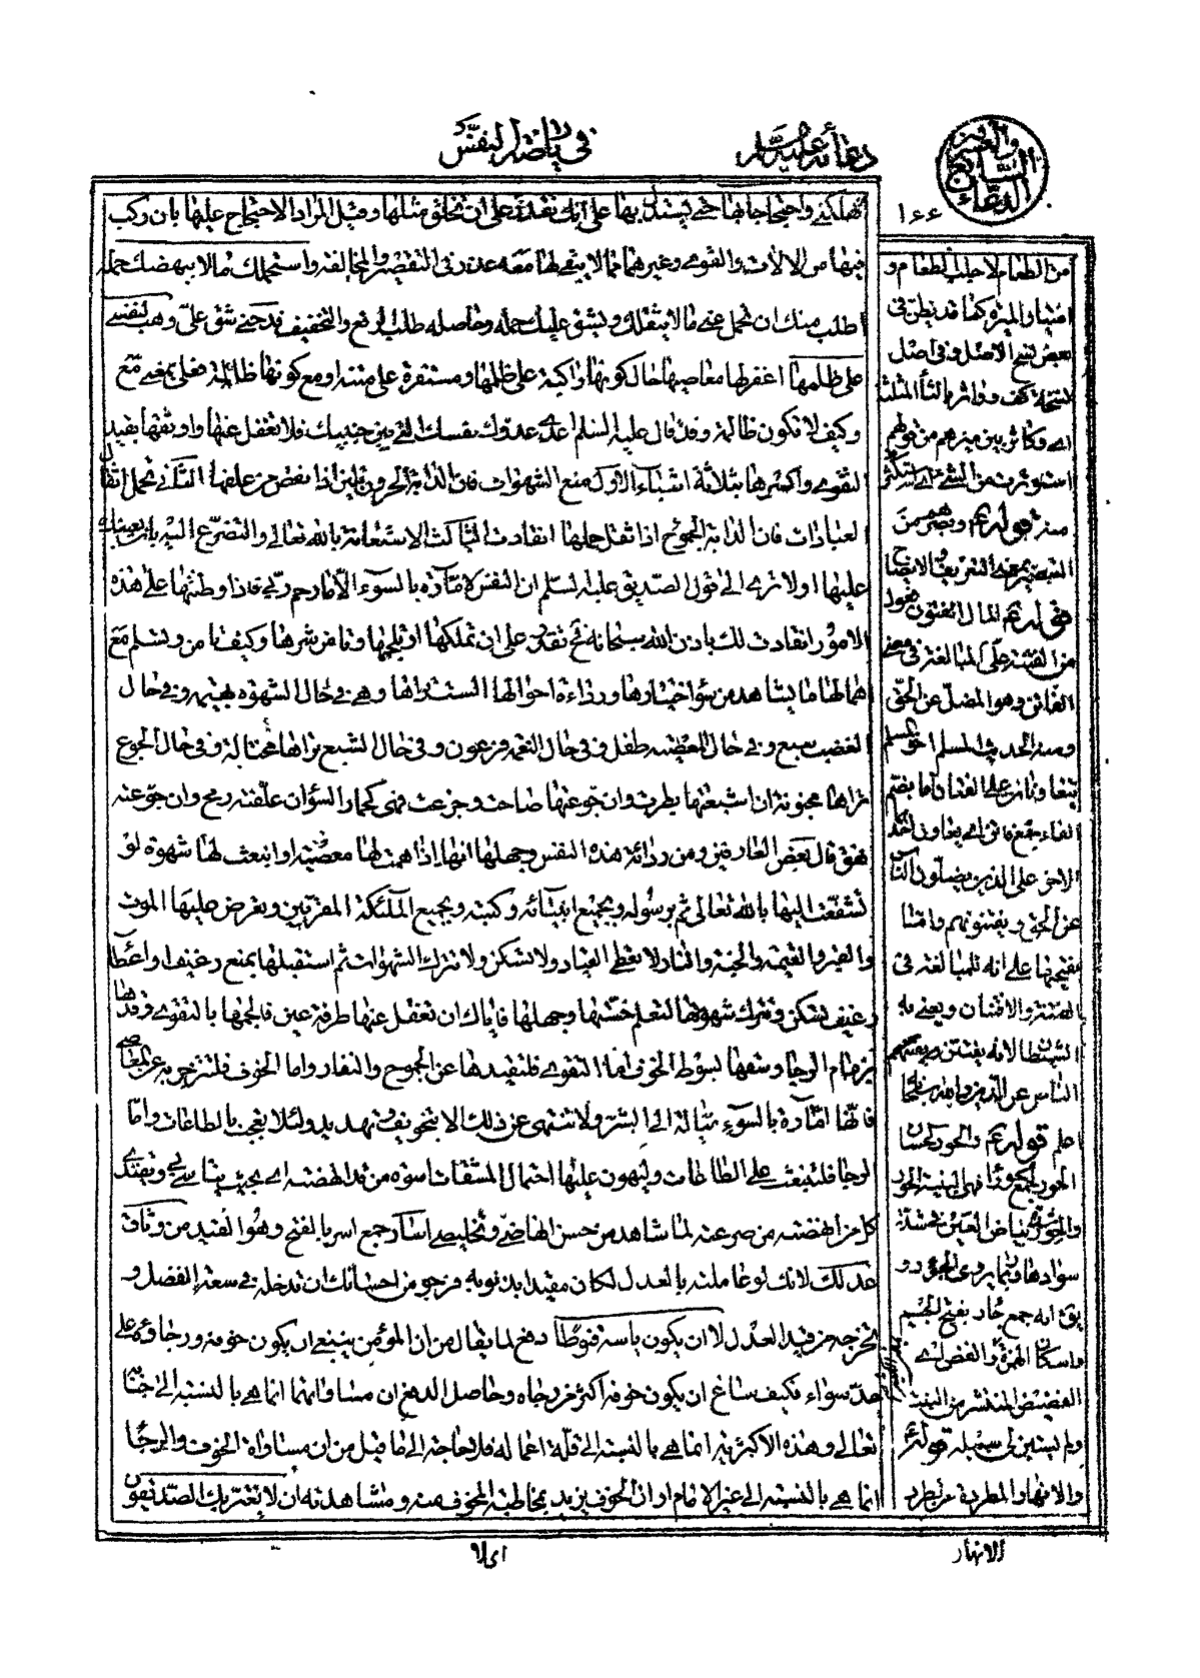 الدعاء السابع والعشرون
١٤٤
دعائه عليه السلام
في
تهلكني واحتجاجا بها حتى يستدل بها على انك تقدر على ان تخلق مثلها وقيل المراد الاحتجاج عليها بان ركب
فيها من الآلات والقوى وغيرهما ما لا يبقى لها معه عذر في التقصير والمخالفة واستحملك ما لا يبهضك حمله
اطلب منك ان تحمل عني ما لا يثقلك ويشق عليك حمله وحاصله طلب الرفع والتخفيف قد حتى شق علي وهب لنفسي
على ظلمها اغفر لها معاصيها حال كونها راكبة على ظلمها ومستقرة على متنه او مع كونها ظالمة فعلى بمعنى مع
وكيف لا تكون ظالمة وقد قال عليه السلم اعدى عدوك نفسك التي بين جنبيك فلا تغفل عنها واوثقها بقيد
التقوى واكسرها بثلاثة اشياء الاول منع الشهوات فان الدابة الحرون تلين اذا نقص من علفها الثاني تحمل اثقال
العبادات فان الدابة الجموح اذا ثقل حملها انقادت الثالث الاستعانة بالله تعالى والتضرع اليه بان يعينك
عليها اولا ترى الى قول الصديق عليه السلم ان النفس لامارة بالسوء الا ما رحم ربي فاذا وطنتها على هذه
الامور انقادت لك باذن الله سبحانه فح تقدر على ان تملكها او تلجمها وتامن شرها وكيف تامن وتسلم مع
اهمالها ما يشاهد من سوء اختيارها ورداءة احوالها الست تراها وهي في حال الشهوة بهيمة وفي حال
الغضب سبع وفي حال المصيبة طفل وفي حال النعمة فرعون وفي حال الشبع تراها مختالة وفي حال الجوع
تراها مجنونة ان اشبعتها بطرت وان جوعتها صاحت وجزعت فهي كحمار السوء ان علفته رمح وان جوعته
نهق قال بعض العارفين ومن رذالة هذه النفس وجهلها انها اذا همت لها معصية او انبعثت لها شهوة لو
تشفعت اليها بالله تعالى ثم برسوله وبجميع انبيائه وكتبه وبجميع الملئكة المقربين وتعرض عليها الموت
والقبر والقيمة والجنة والنار لا تعطي القياد ولا تسكن ولا تترك الشهوات ثم استقبلها بمنع رغيف او اعطاء
رغيف تسكن وتترك شهوتها لتعلم خستها وجهلها فاياك ان تغفل عنها طرفة عين فالجمها بالتقوى وقدها
بزمام الرجا وسقها بسوط الخوف اما التقوى فلتقيدها عن الجموح والنفار واما الخوف فلتنزجر به عن المعاصي
فانها امارة بالسوء ميالة الى الشر ولا تنتهي عن ذلك الا بتخويف وتهديد ولئلا يعجب بالطاعات واما
الرجا فلتبعث على الطاعات وليهون عليها احتمال المشقات اسوة من قد انهضته اي بحيث يتاسى بي ويقتدي
كل من انهضته من صرعته لما شاهد من حسن انهاضي وتخليصي اسآر جمع اسر بالفتح وهو القيد من وثاق
عدلك لانك لو عاملته بالعدل لكان مقيدا بذنوبه فرجو من احسانك ان تدخله في سعة الفضل و
تخرجه من قيد العدل لا ان يكون يأسه قنوطا دفع لما يقال من ان المؤمن ينبغي ان يكون خوفه ورجاؤه على
حد سواء فكيف ساغ ان يكون خوفه اكثر من رجاه وحاصل الدفع ان مساواتهما انما هي بالنسبة الى جنابه
تعالى وهذه الاكثرية انما هي بالنسبة الى قلة اعماله فلا حاجة الى ما قيل من ان مساواة الخوف والرجا
انما هي بالنسبة الى غير الامام او ان الخوف يزيد بمخاطبة المخوف منه ومشاهدته ان لا يغتر بك الصديقون
من الطعام لاجلب لطعام و
بعض نسخ الاصل وفي اصل
اي وكاثر بينهم من قولهم
منه قوله وبصرهم من
قوله المال الفتون فعول
من الفتنة على المبالغة في معنى
الفاتن وهو المضل عن الحق
ومنه الحديث المسلم اخو المسلم
يتعاونان على الفتان اما بضم
الفاء جمع فاتن اي يعاون احدهما
الاخر على الذين يضلون الناس
عن الحق ويفتنونهم واما
بفتحها على انه للمبالغة في
الفتنة والافتتان ويعنى به
الشيطان لانه يفتتن ويفتنهم
الناس عن الدين
قوله والحور الحسان
سوادها وربما يروى الحؤر
يق انه جمع بفتح الجيم
واسكان الهمزة والغض اي
ولم يستبن لي سبيله قوله
والانهار المطردة من طرد
الانهار
اى لا